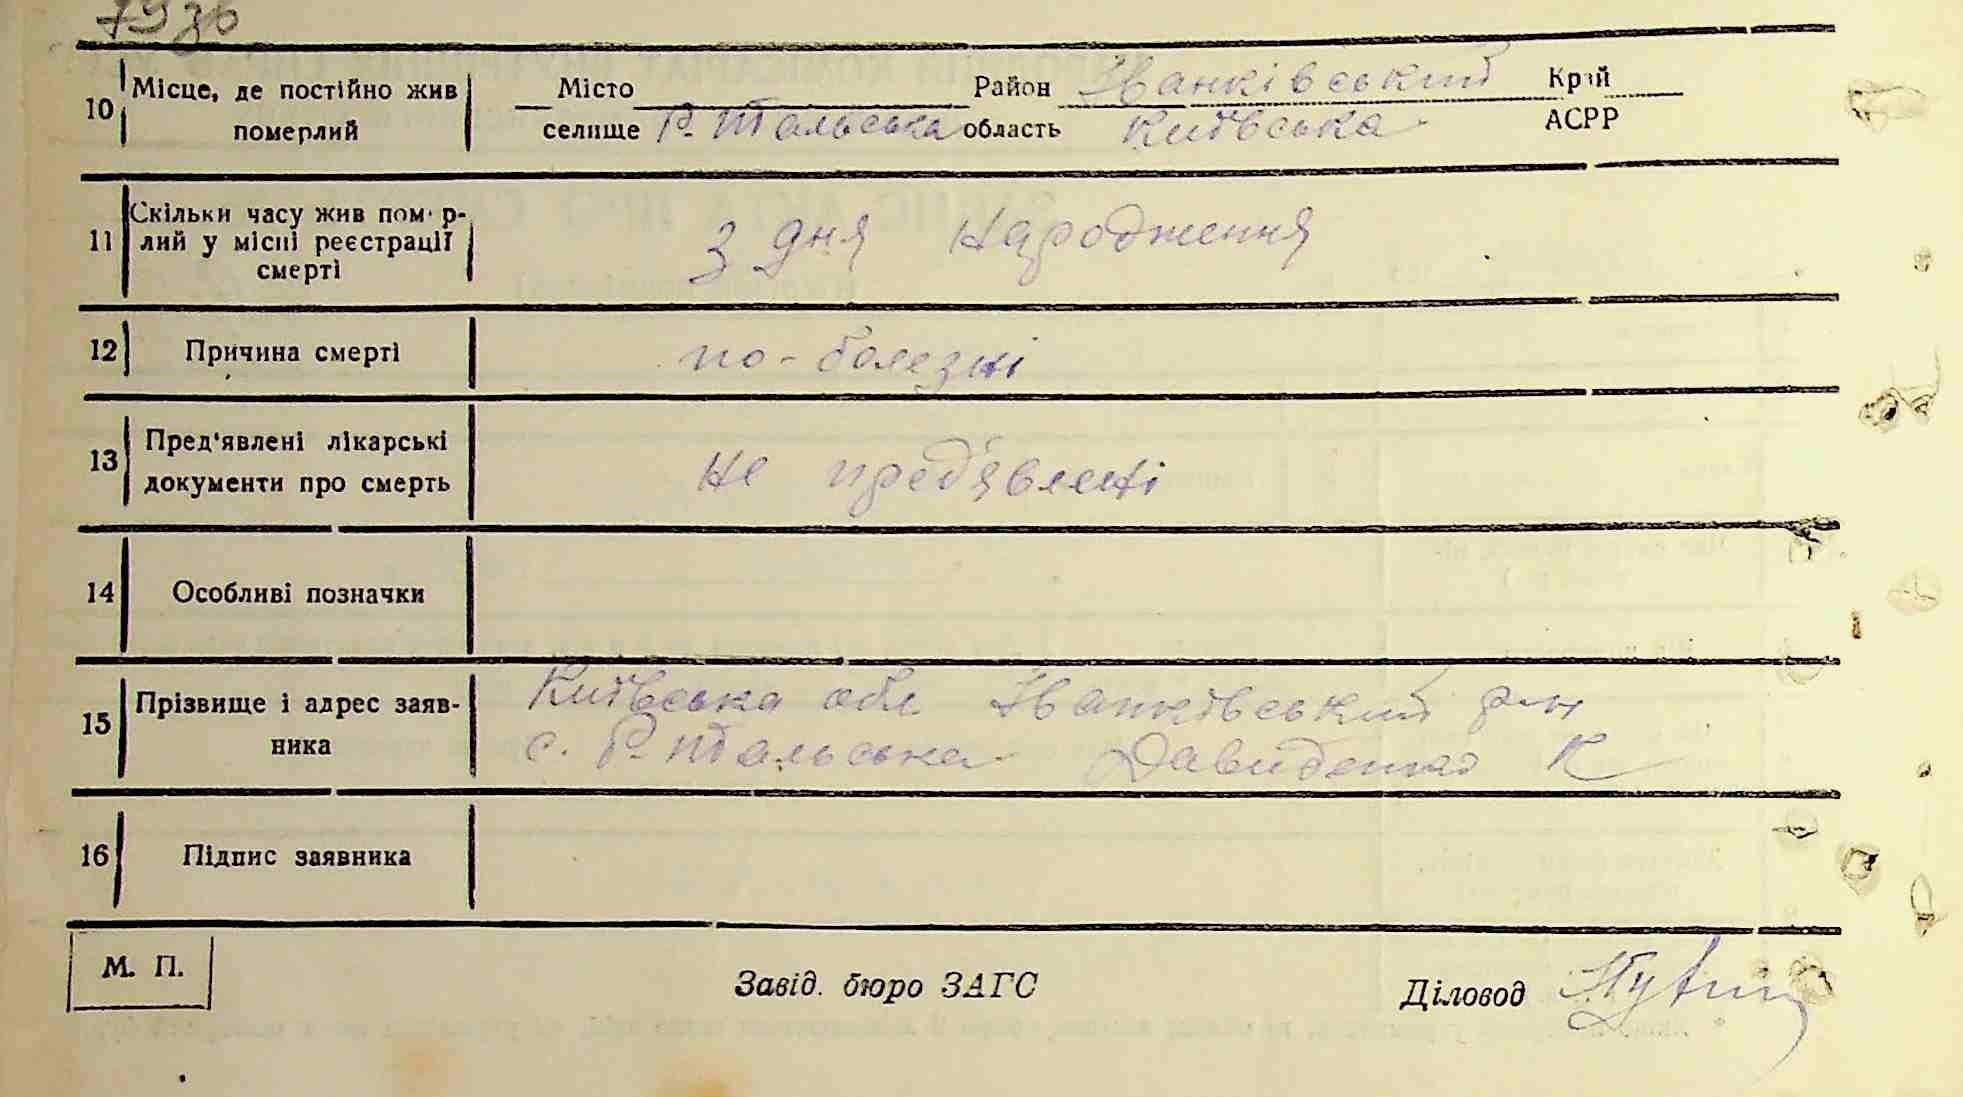 79зв
10 Місце, де постійно жив померлий Місто селище Р. Тальська Район Іванківський область Київська Край АСРР
11 Скільки часу жив померлий у місці реєстрації смерті з дня народження
12 Причина смерті по-болезні
13 Пред'явлені лікарські документи про смерть не пред'явлені
14 Особливі позначки
15 Прізвище і адрес заявника Київська обл Іванківський р-н
с. Р. Тальська Давиденко К
16 Підпис заявника
М. П. Завід. бюро ЗАГС Діловод